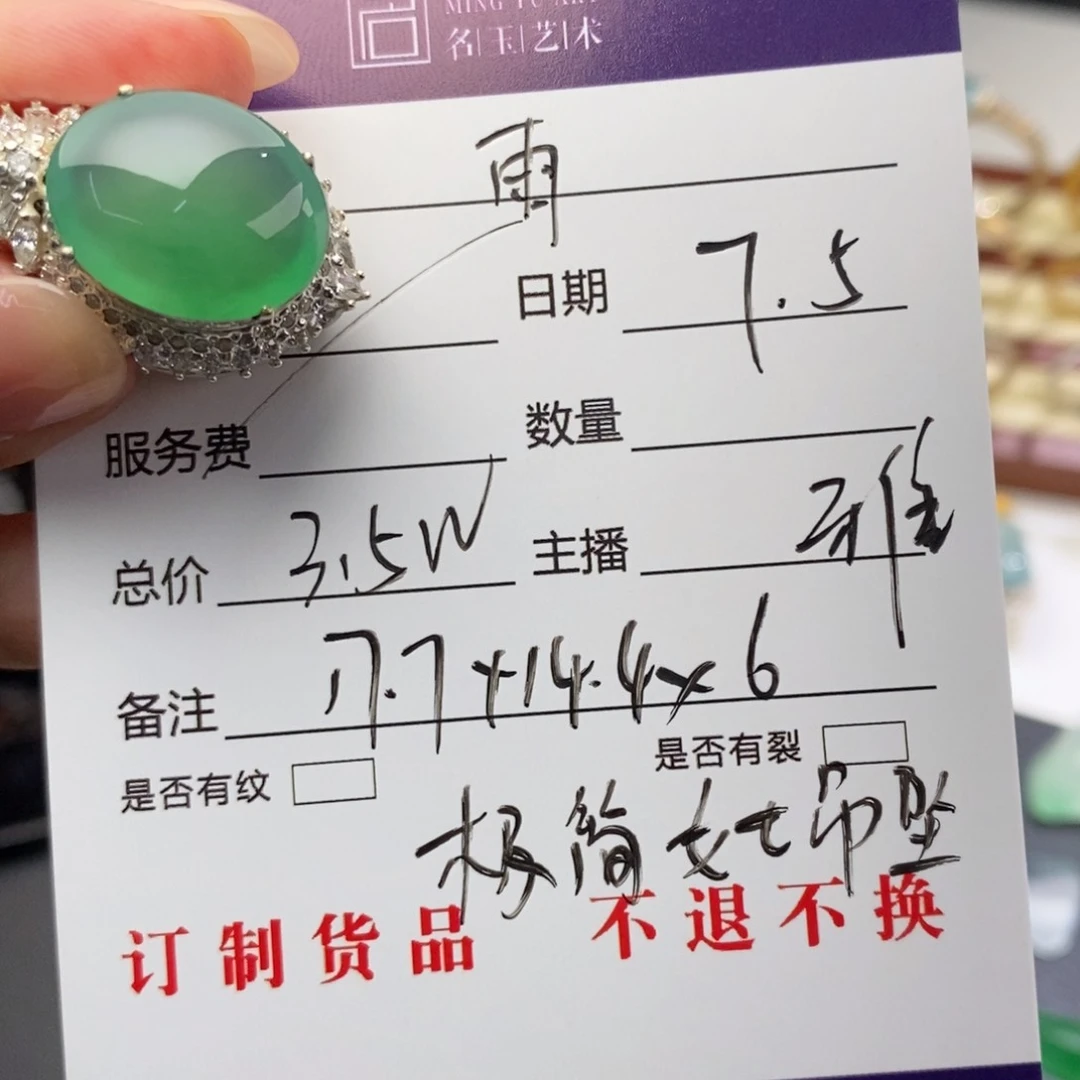 名玉艺术
雨
日期 7.5
服务费 数量
总价 3.5W 主播 雅
备注 17.7×14.4×6
是否有纹 是否有裂
极简女七吊坠
订制货品 不退不换